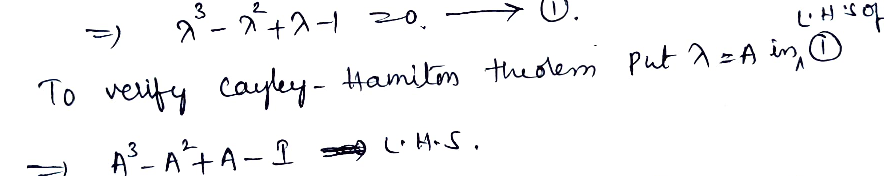 =) λ³ - λ² + λ - 1 = 0. ⟶ ①.
To verify Cayley-Hamilton theolem Put λ = A in L.H.S of ①
=) A³ - A² + A - I L.H.S.